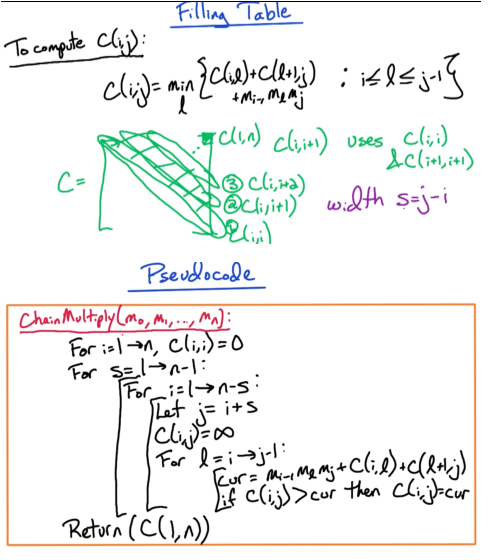 Filling Table
To compute C(i,j):
C(i,j) = min {C(i,l)+C(l+1,j) : i≤l≤j-1}
l +m_{i-1} m_l m_j
C(1,n) C(i,i+1) uses C(i,i)
& C(i+1,i+1)
C= ③ C(i,i+2)
② C(i,i+1) width s=j-i
① C(i,i)
Pseudocode
ChainMultiply(m_0, m_1, ..., m_n):
For i=1→n, C(i,i)=0
For s=1→n-1:
For i=1→n-s:
Let j=i+s
C(i,j)=∞
For l=i→j-1:
cur = m_{i-1} m_l m_j + C(i,l) + C(l+1,j)
if C(i,j)>cur then C(i,j)=cur
Return(C(1,n))